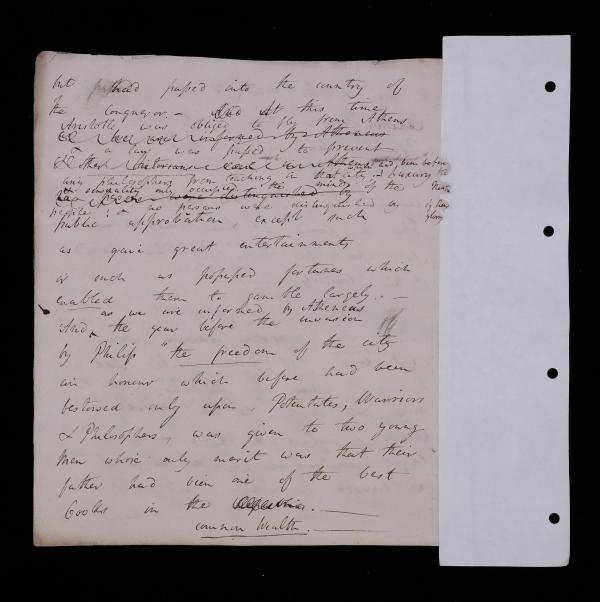 but had passed into the country of
the conqueror. — At this time
Aristotle was obliged to fly from Athens
informed by Atheneus
& a law was passed to prevent
any philosophers from teaching in that city. Luxury
& sensuality only occupied the minds of the
people: & no persons were distinguished by
public approbation, except such
as gave great entertainments
or such as possessed fortunes which
enabled them to gamble largely. —
as we are informed by Atheneus
And the year before the invasion
by Philip "the freedom of the city
an honour which before had been
bestowed only upon, Potentates, Warriors
& Philosophers, was given to two young
Men whose only merit was that their
father had been one of the best
Cooks in the
common Wealth. —